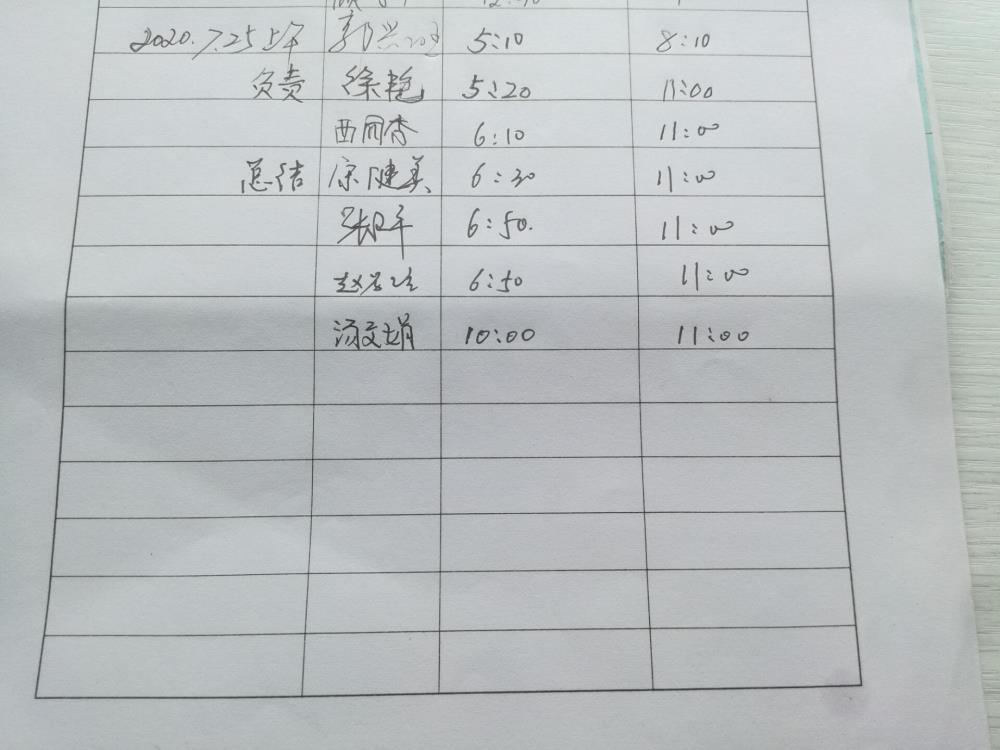 2020.7.25上午 郭兴 5:10 8:10
负责 徐艳 5:20 11:00
西同香 6:10 11:00
总结 宗健美 6:30 11:00
张卫平 6:50. 11:00
赵 6:50 11:00
汤文娟 10:00 11:00